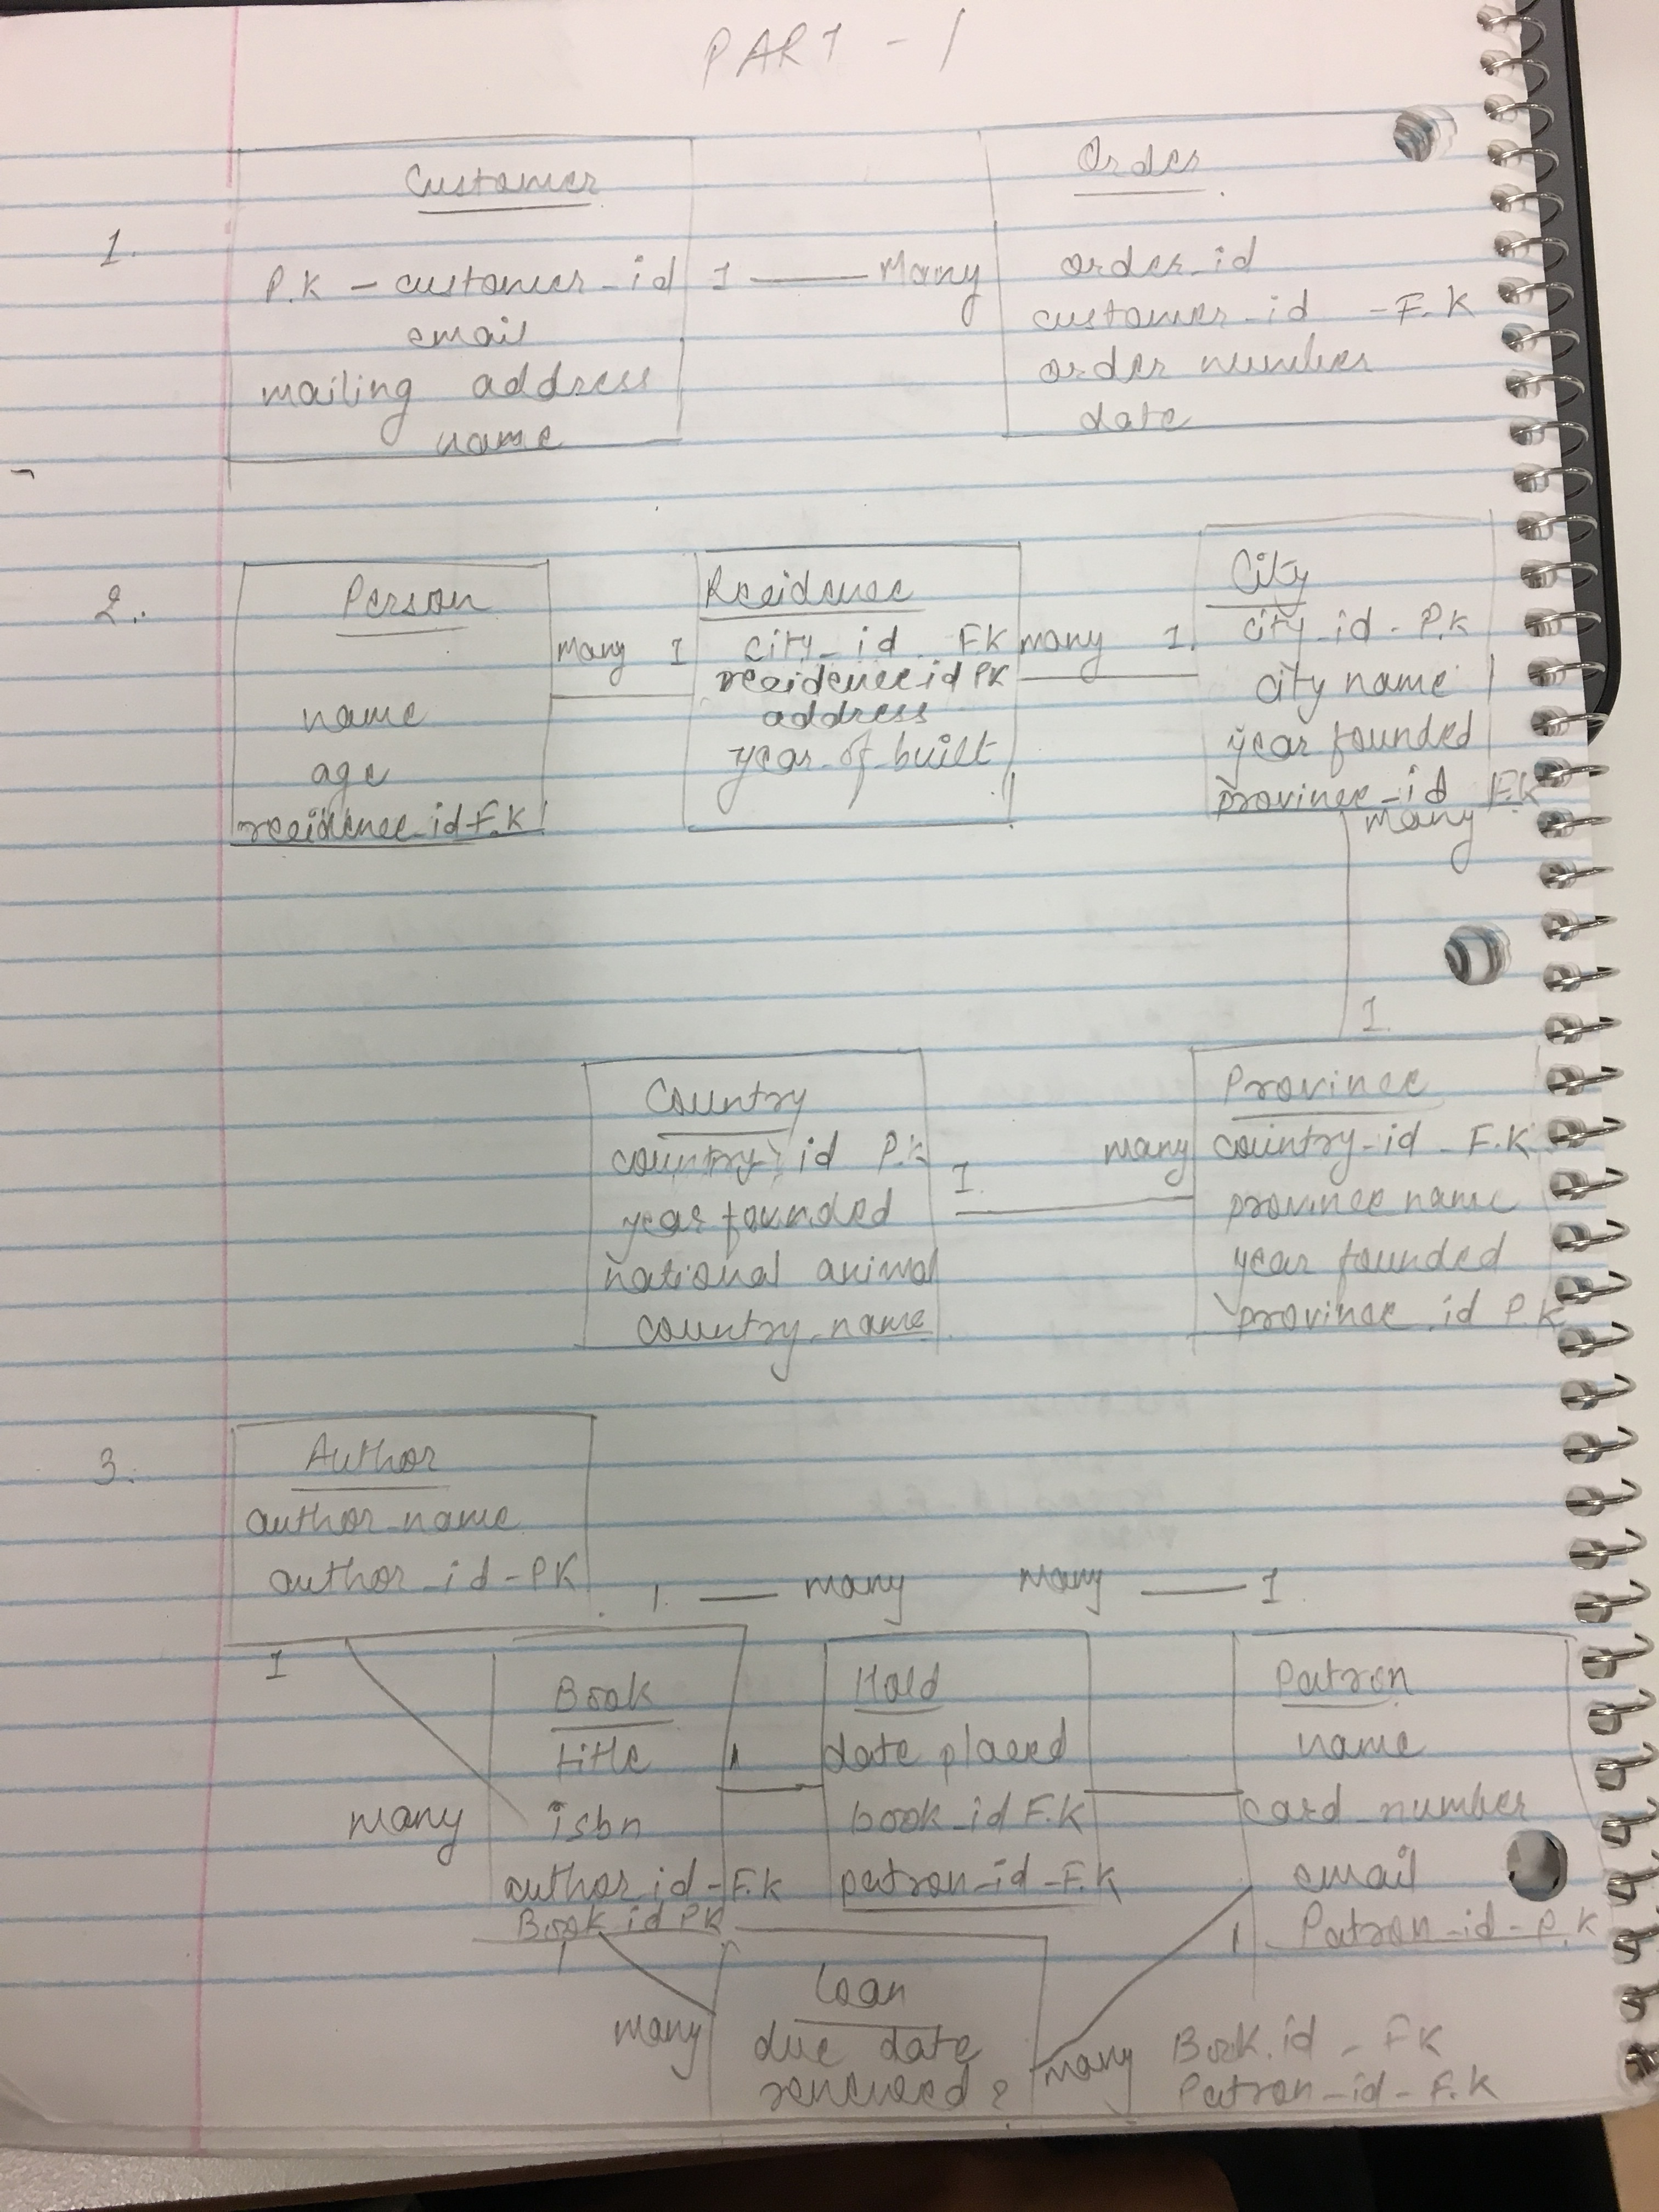 PART - 1
1.
Customer
P.K - customer_id
email
mailing address
name
1 — Many
Order
order_id
customer_id - F.K
order number
date
2.
Person
name
age
residence_id F.K
Many 1
Residence
city_id FK
residence_id PK
address
year_of_built
many 1.
City
city_id - P.K
city name
year founded
province_id F.K
many
1.
Country
country id P.K
year founded
national animal
country_name
1. many
Province
country_id - F.K
province name
year founded
province_id P.K
3.
Author
author_name
author_id - PK
1 — many many — 1
1
many
Book
title
isbn
author_id - F.K
Book id PK
Hold
date placed
book_id F.K
patron_id - F.K
Patron
name
card_number
email
Patron_id - P.K
1
1
many
Loan
due date
renewed ?
many
Book_id - FK
Patron_id - F.K